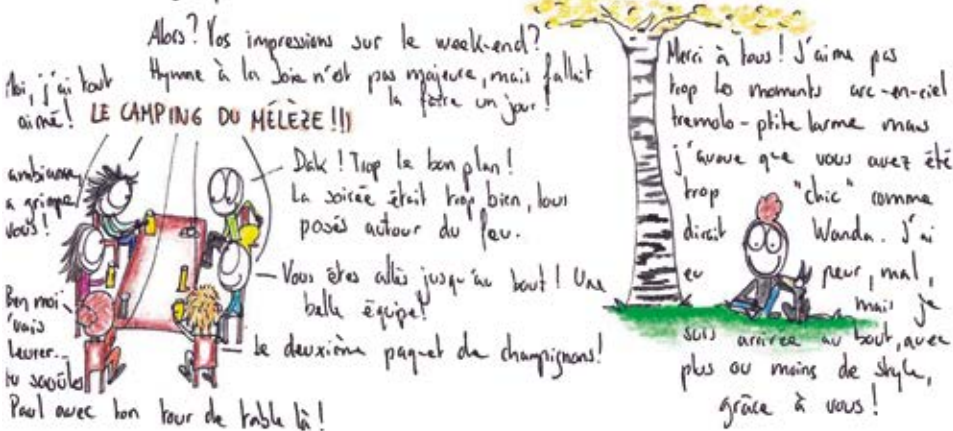 Alors? Vos impressions sur le week-end?
Hymne à la Joie n'est pas majeure, mais fallait
la faire un jour!
Moi, j'ai tout
aimé!
LE CAMPING DU MÉLÈZE!!!
ambiance
a grimpe
vous!
Dak! Trop le bon plan!
La soirée était trop bien, tous
posés autour du feu.
Vous êtes allés jusqu'au bout! Une
belle équipe!
Le deuxième paquet de champignons!
Ben moi
'vais
tu saoules
Paul avec ton tour de table là!
Merci à tous! J'aime pas
trop les moments arc-en-ciel
tremolo-ptite larme mais
j'avoue que vous avez été
trop "chic" comme
dirait Wanda. J'ai
eu peur, mal,
mais je
suis arrivée au bout, avec
plus ou moins de style,
grâce à vous!